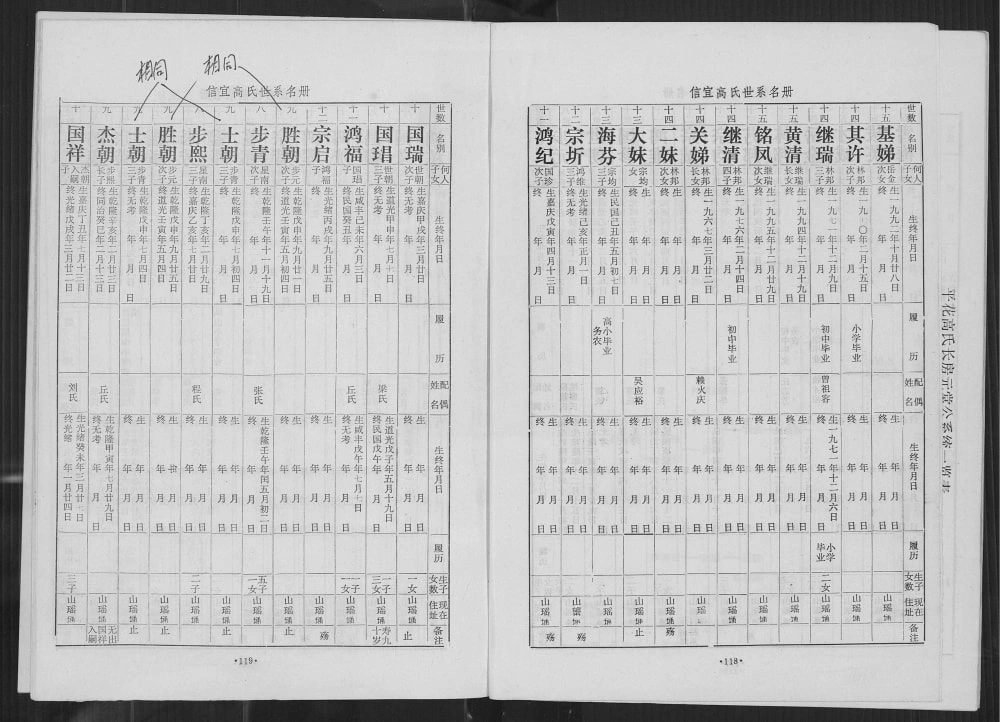 信宜高氏世系名册
世数 名别 何人子女 生终年月日 履历 配偶姓名 生终年月日 履历 生子女数 现在住址 备注
十五 基娣 岳金次女 生一九九二年十月廿八日 终 年 月 日 生 年 月 日 终 年 月 日 山瑶
十四 其许 林邦三子 小学毕业 生 年 月 日 终 年 月 日 山瑶
十四 继瑞 林邦三子 生一九七一年十二月九日 终 年 月 日 初中毕业 曾祖容 生一九七一年十二月六日 终 年 月 日 小学毕业 二女 山瑶
十五 黄清 继瑞长女 生一九九四年十二月十九日 终 年 月 日 生 年 月 日 终 年 月 日 山瑶
十五 铭凤 继瑞次女 生一九九五年十二月十九日 终 年 月 日 生 年 月 日 终 年 月 日 山瑶
十四 继清 林邦四子 生一九七六年二月十四日 终 年 月 日 初中毕业 生 年 月 日 终 年 月 日 山瑶
十四 关娣 林邦长女 生一九六七年三月廿二日 终 年 月 日 赖火庆 生 年 月 日 终 年 月 日 山瑶
十四 二妹 林邦次女 生 年 月 日 终 年 月 日 生 年 月 日 终 年 月 日 山瑶
十三 大妹 宗均女 生 年 月 日 终 年 月 日 吴应裕 生 年 月 日 终 年 月 日 山瑶 止
十三 海芬 宗均三子 生民国己丑年五月初七日 终 年 月 日 高小毕业务农 生 年 月 日 终 年 月 日 山瑶
十二 宗圻 鸿维三子 生光绪己亥年正月一日 终 年 月 日 生 年 月 日 终 年 月 日 山 殇
十一 鸿纪 国珍次子 生嘉庆戊寅年四月十三日 终 年 月 日 生 年 月 日 终 年 月 日 山瑶 殇
·118·
平花高氏长房元堂公系统一览表
相同
相同
信宜高氏世系名册
十 国瑞 世朝次子 生嘉庆甲戌年三月廿日 终无考 生 年 月 日 终 年 月 日 一女 山瑶 止
十 国琩 世朝三子 终无考 梁氏 生道光戊子年五月十九日 终民国戊午年 月 日 一子三女 山瑶 寿九十岁
十一 鸿福 生咸丰己未年六月三日 终民国癸丑年 月 日 丘氏 生咸丰戊午年七月七日 终无考 一子一女 山瑶
十二 宗启 鸿福子 生光绪丙戌年十月九日 终 年 月 日 生 年 月 日 终 年 月 日 山瑶 殇
九 胜朝 步元次子 生乾隆戊申年九月廿一日 终道光壬寅年五月四日 生 年 月 日 终 年 月 日 山瑶 止
八 步青 星南次子 生乾隆壬午年十一月十九日 张氏 生乾隆壬午年闰五月初二日 五子一女 山瑶
九 士朝 步青三子 生乾隆戊申年十月初四日 终 年 月 日 生 年 月 日 终 年 月 日 山瑶 止
八 步熙 星南三子 生乾隆丁亥年六月廿二日 终嘉庆乙亥年二月廿日 程氏 生 年 月 日 终 年 月 日 二子 山瑶
九 胜朝 步元次子 生乾隆戊申年九月廿五日 终道光壬寅年五月四日 生 年 月 日 终 年 月 日 山瑶
九 士朝 步青三子 生乾隆戊申年七月四日 终 年 月 日 生 年 月 日 终 年 月 日 山瑶 止
九 杰朝 步熙长子 生乾隆辛亥年二月廿三日 终同治癸巳年二月十三日 丘氏 生乾隆甲寅年七月廿九日 终无考 山瑶 无出国祥入嗣
十 国祥 杰朝入嗣子 生嘉庆丁丑年七月十三日 终光绪戊戌年三月廿二日 刘氏 生光绪癸未年三月廿四日 终光绪 年 月 日 三子 山瑶
·119·